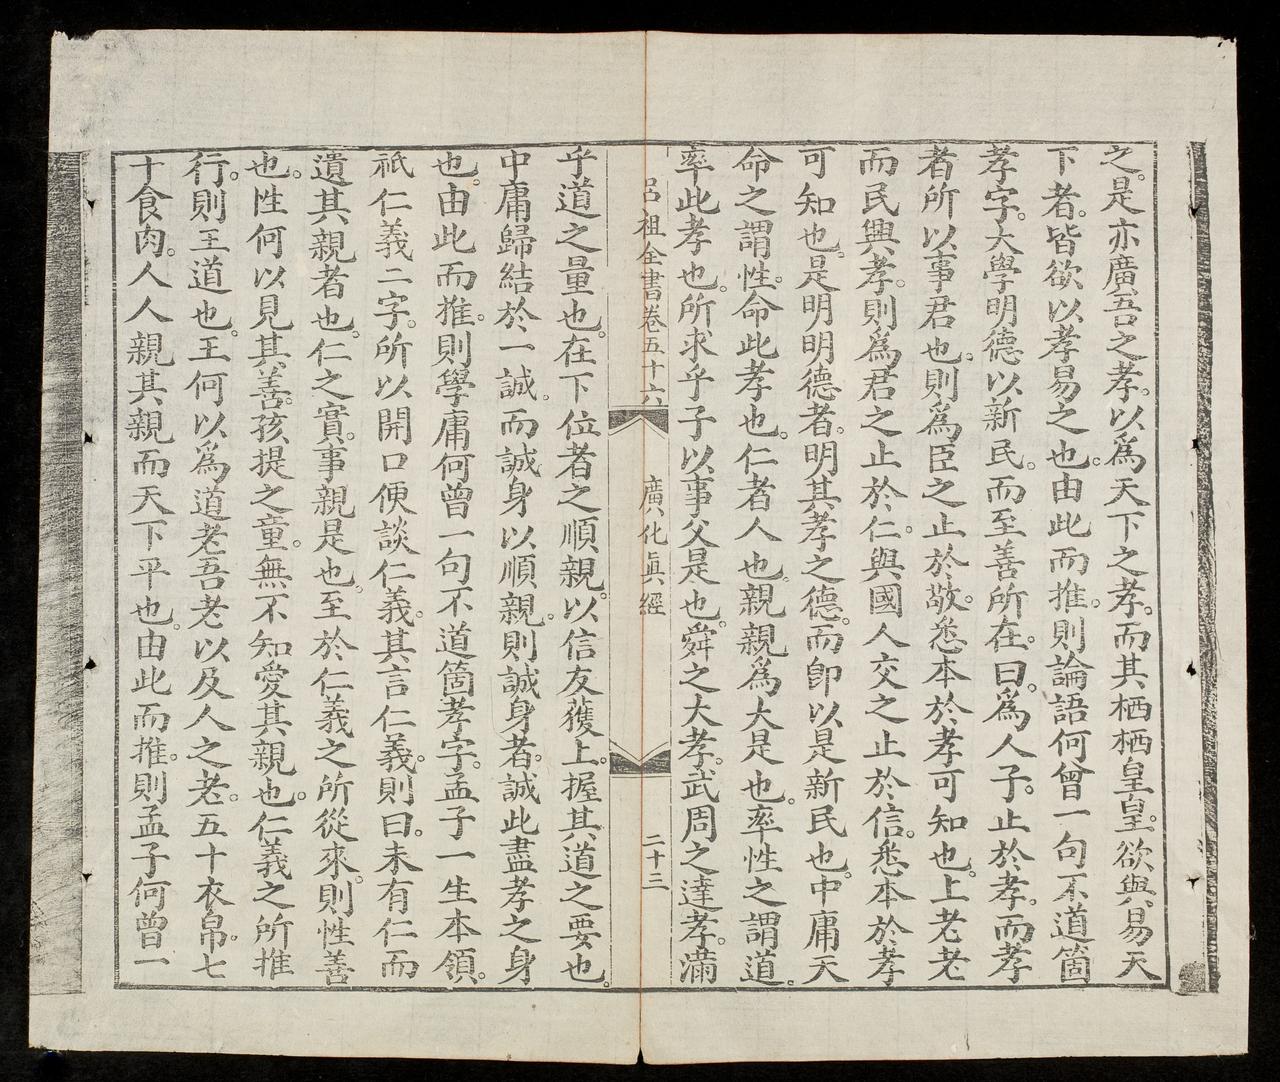 之。是亦廣吾之孝。以爲天下之孝。而其栖栖皇皇。欲與易天
下者。皆欲以孝易之也。由此而推。則論語何曾一句不道箇
孝字。大學明德以新民。而至善所在。曰。爲人子。止於孝。而孝
者所以事君也。則爲臣之止於敬。悉本於孝可知也。上老老
而民興孝。則爲君之止於仁。與國人交之止於信。悉本於孝
可知也。是明明德者。明其孝之德。而卽以是新民也。中庸天
命之謂性。命此孝也。仁者人也。親親爲大是也。率性之謂道。
率此孝也。所求乎子以事父是也。舜之大孝。武周之達孝。滿
呂祖全書卷五十六 廣化眞經 二十三
乎道之量也。在下位者之順親。以信友獲上。握其道之要也。
中庸歸結於一誠。而誠身以順親。則誠身者。誠此盡孝之身
也。由此而推。則學庸何曾一句不道箇孝字。孟子一生本領。
祇仁義二字。所以開口便談仁義。其言仁義。則曰。未有仁而
遺其親者也。仁之實。事親是也。至於仁義之所從來。則性善
也。性何以見其善。孩提之童。無不知愛其親也。仁義之所推
行。則王道也。王何以爲道。老吾老以及人之老。五十衣帛。七
十食肉。人人親其親而天下平也。由此而推。則孟子何曾一